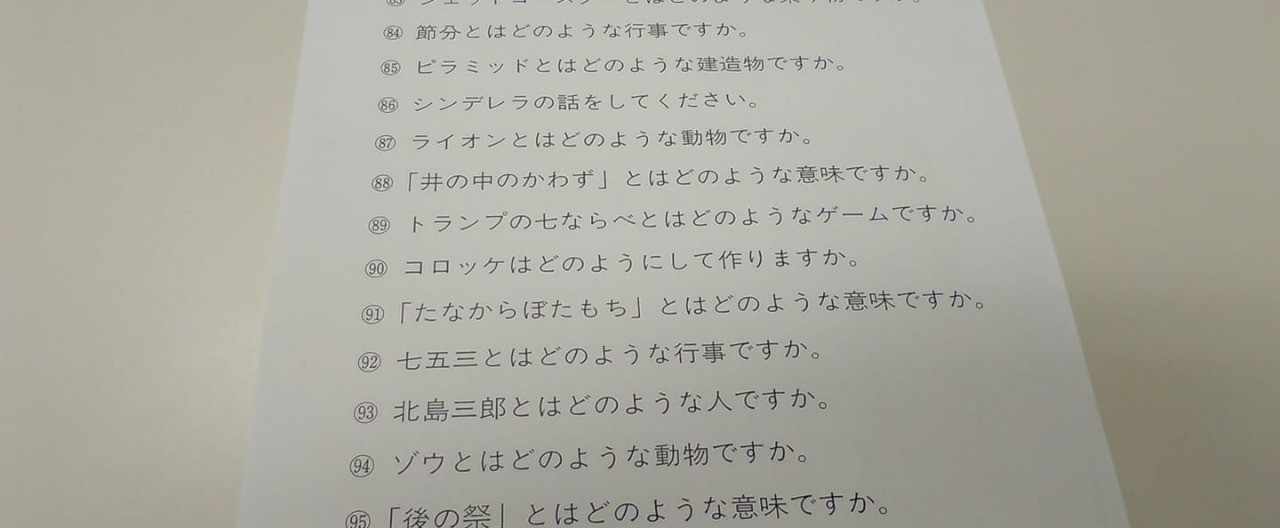 ㊽ ジェットコースターとはどのような乗り物ですか。
84 節分とはどのような行事ですか。
85 ピラミッドとはどのような建造物ですか。
86 シンデレラの話をしてください。
87 ライオンとはどのような動物ですか。
88 「井の中のかわず」とはどのような意味ですか。
89 トランプの七ならべとはどのようなゲームですか。
90 コロッケはどのようにして作りますか。
91 「たなからぼたもち」とはどのような意味ですか。
92 七五三とはどのような行事ですか。
93 北島三郎とはどのような人ですか。
94 ゾウとはどのような動物ですか。
95 「後の祭」とはどのような意味ですか。